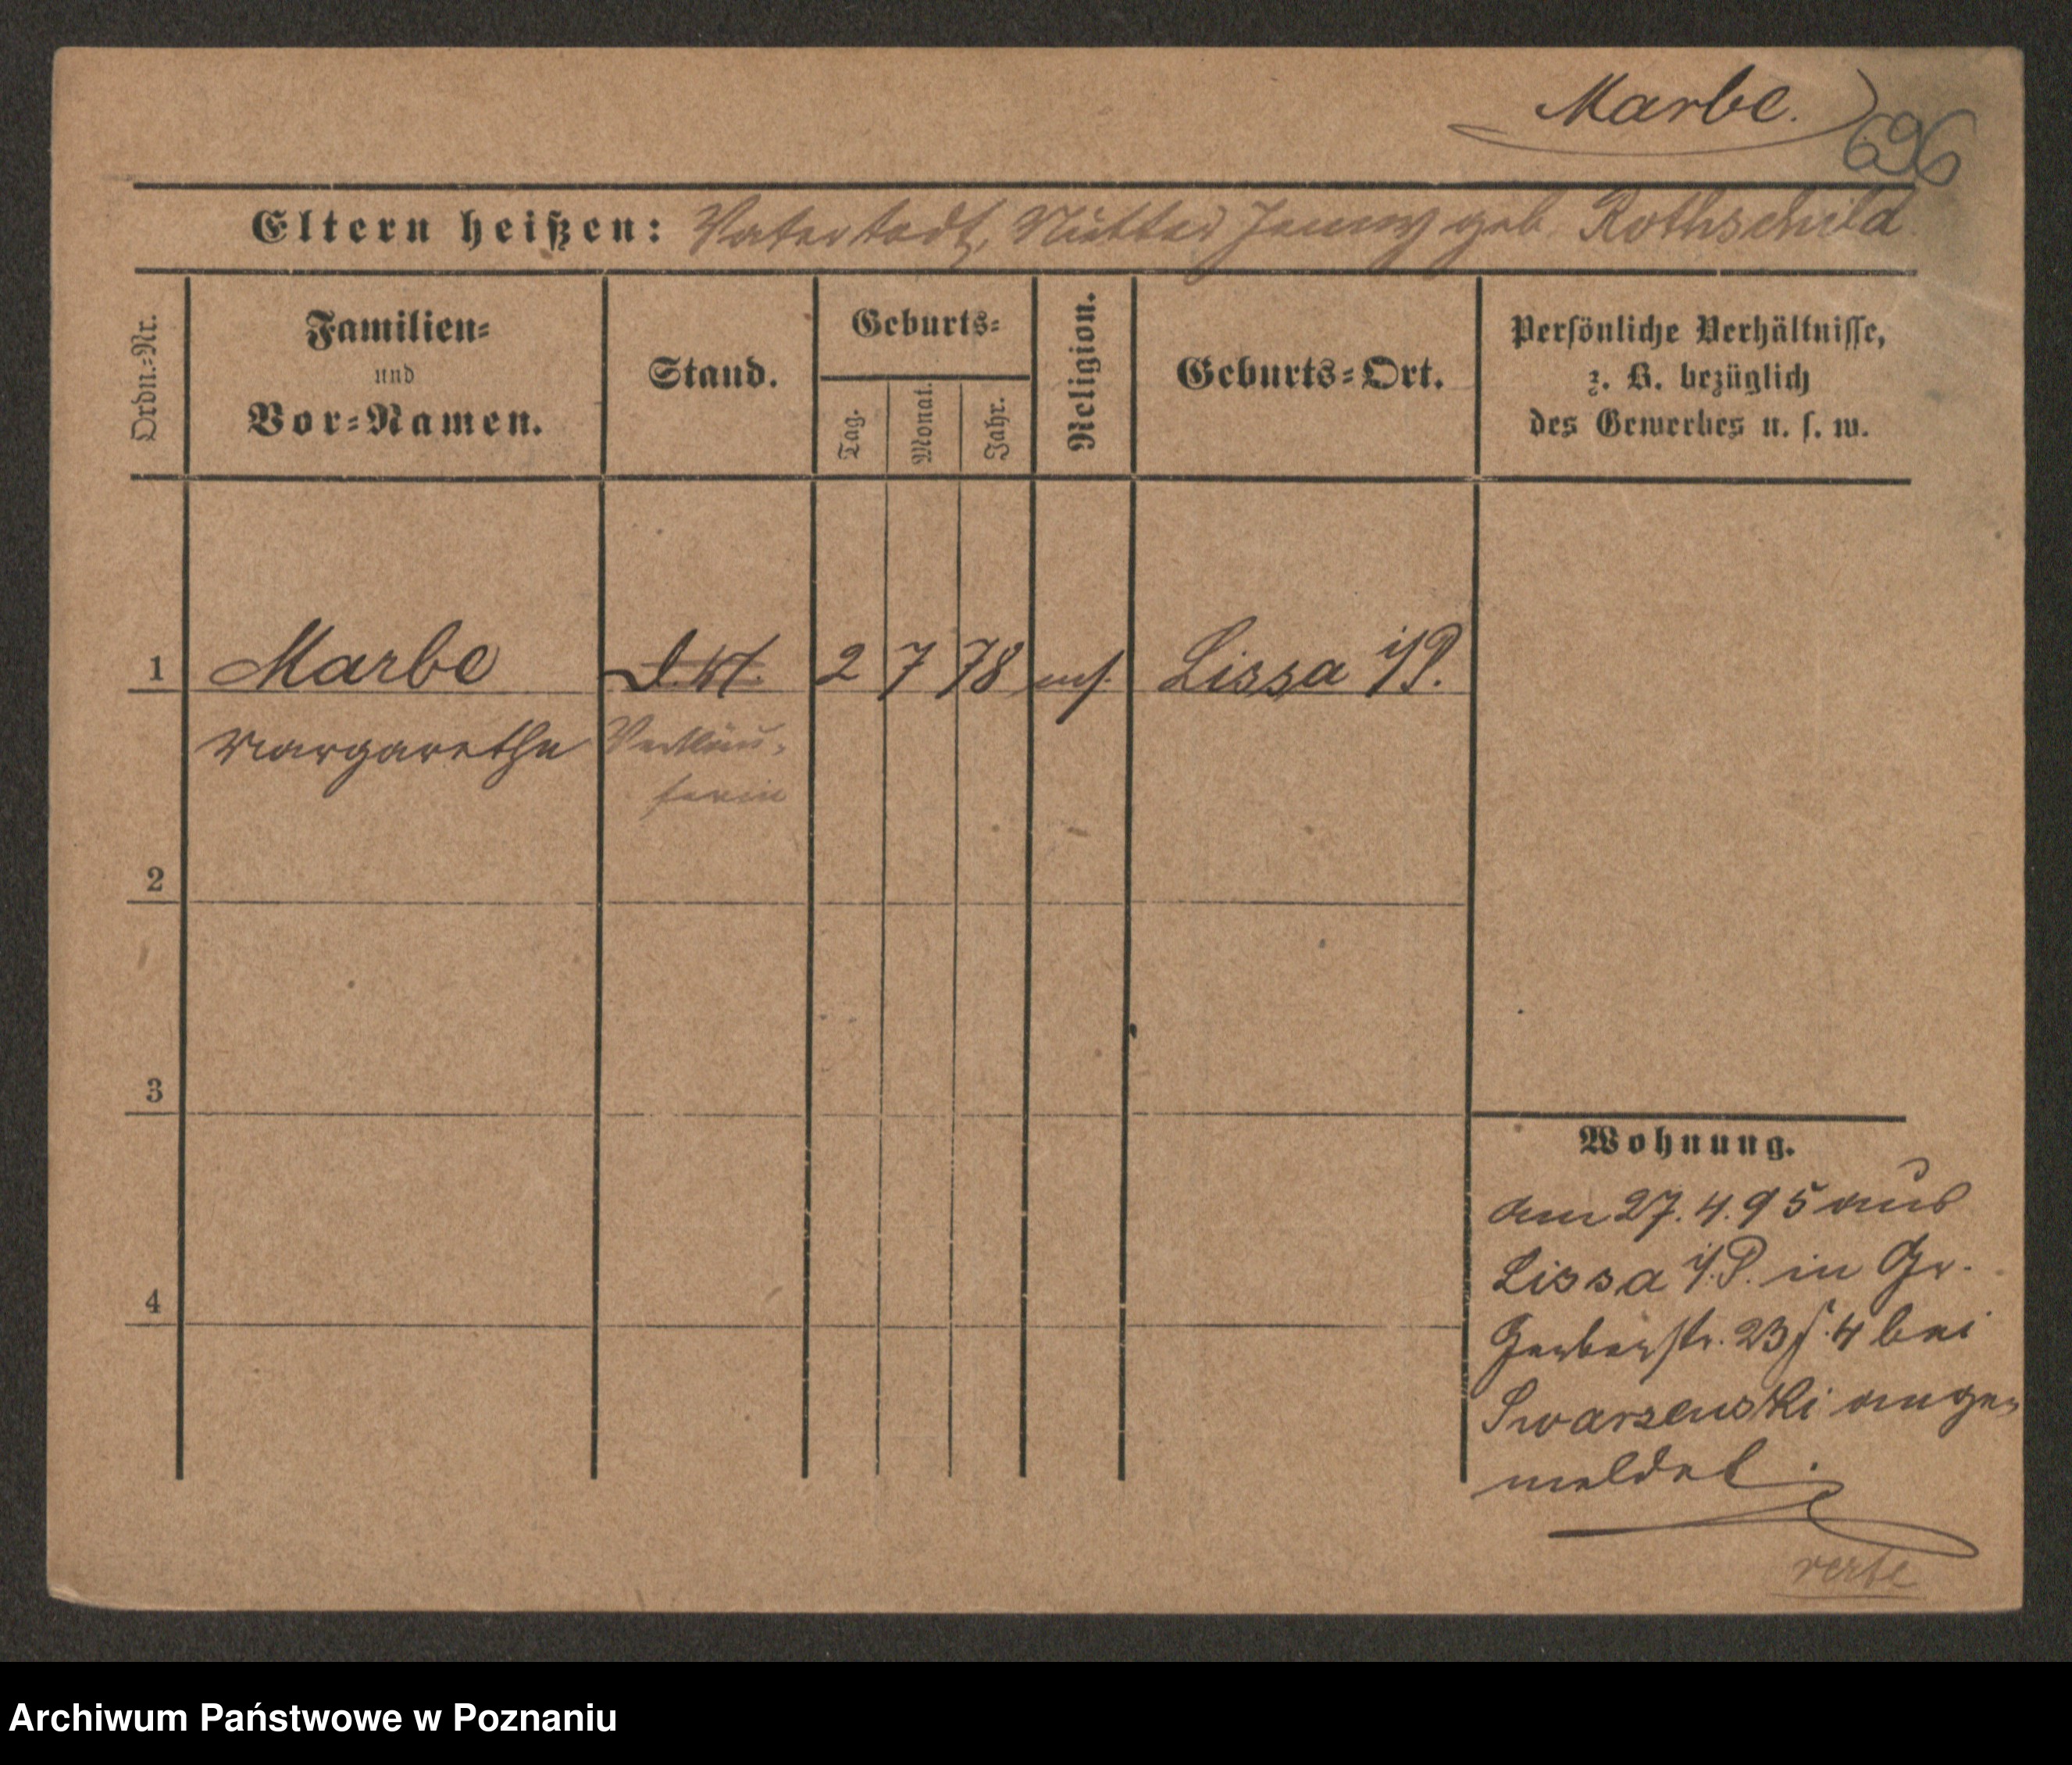 Marbe.
696
Eltern heißen: Vater todt, Mutter Jenny geb. Rothschild
Ordn.-Nr.
Familien-
und
Vor-Namen.
Stand.
Geburts-
Tag.
Monat.
Jahr.
Religion.
Geburts-Ort.
Persönliche Verhältnisse,
z. B. bezüglich
des Gewerbes u. s. w.
1 Marbe 2 7 78 mos. Lissa i/P.
Margarethe Verkäu-
ferin
2
3
4
Wohnung.
am 27.4.95 aus
Lissa i/P. in Gr.
Gerberstr. 23 f. 4 bei
Swarzenski ange-
meldet.
Archiwum Państwowe w Poznaniu